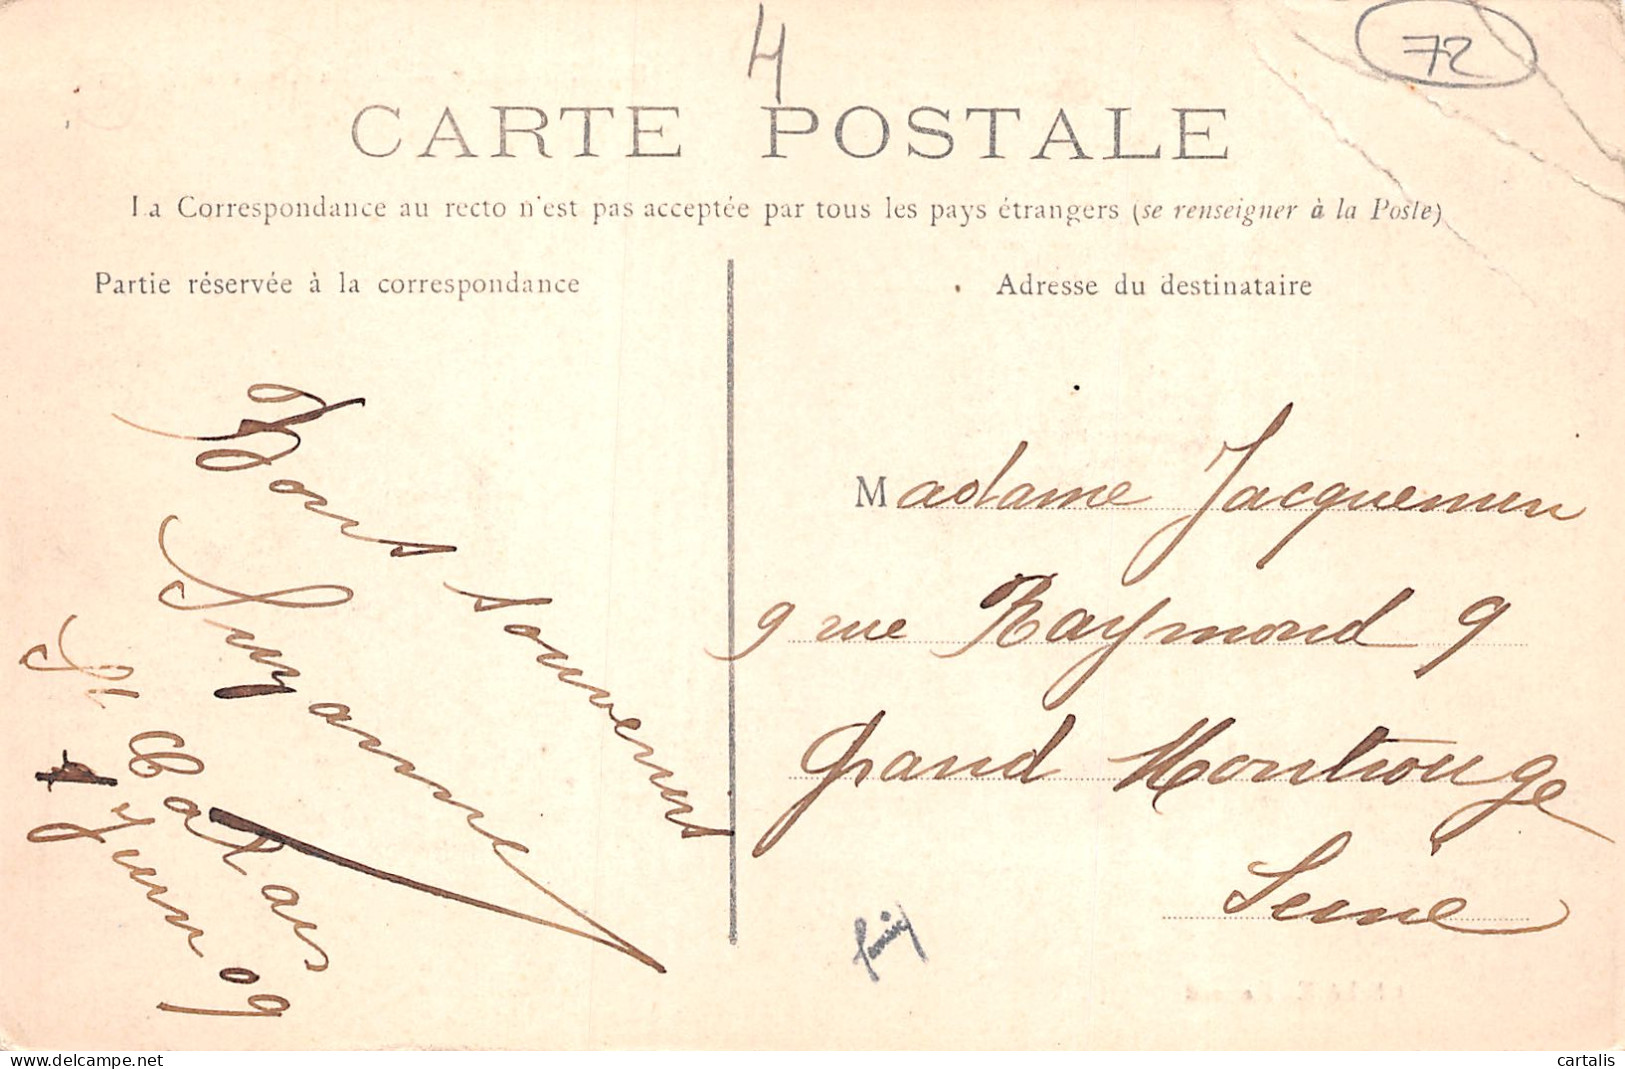 4
72
CARTE POSTALE
La Correspondance au recto n'est pas acceptée par tous les pays étrangers (se renseigner à la Poste)
Partie réservée à la correspondance
Bons souvenirs
Suzanne
St Calais
7 Juin 09
Adresse du destinataire
Madame Jacquemin
9 rue Raymond 9
Grand Montrouge
Seine
delcampe.net
cartalis